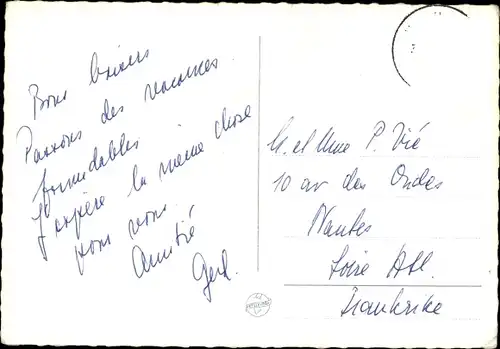 Bons baisers
Passons des vacances
formidables
J'espère la même chose
pour vous.
Amitié
M. et Mme P. Vié
10 av des Ondes
Nantes
Loire Atl.
Frankrike